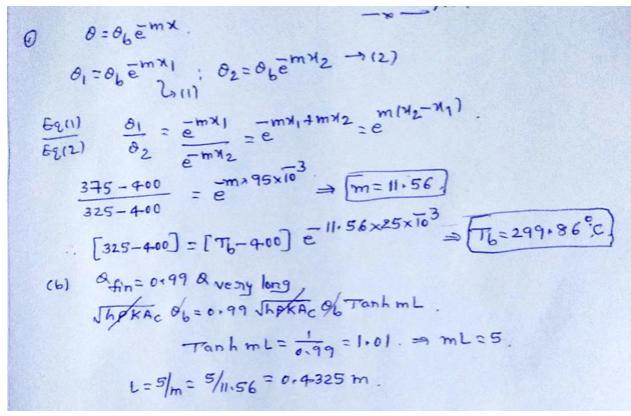 ① θ = θ_b e^{-mx}
θ₁ = θ_b e^{-mx₁} ; θ₂ = θ_b e^{-mx₂} → (2)
↳ (1)
Eq(1)/Eq(2) θ₁/θ₂ = e^{-mx₁}/e^{-mx₂} = e^{-mx₁+mx₂} = e^{m(x₂-x₁)}.
(375-400)/(325-400) = e^{-m×95×10^{-3}} ⇒ m = 11.56
∴ [325-400] = [T_b-400] e^{-11.56×25×10^{-3}} ⇒ T_b = 299.86°C
(b) Q_fin = 0.99 Q very long
√hPKAc θ_b = 0.99 √hPKAc θ_b Tanh mL.
Tanh mL = 1/0.99 = 1.01. ⇒ mL = 5.
L = 5/m = 5/11.56 = 0.4325 m.